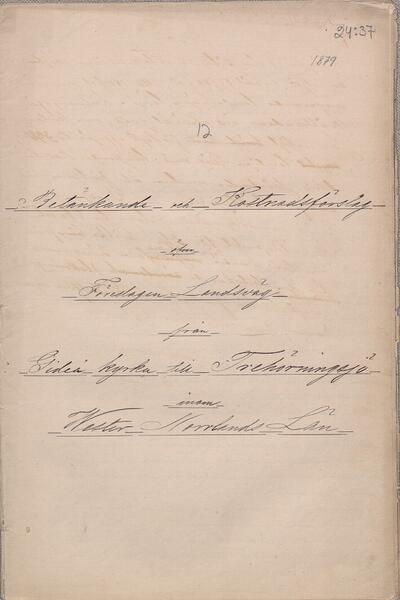 24:37
1879
12
Betänkande och Kostnadsförslag
öfver
Föreslagen Landsväg
från
Gideå kyrka till Trehörningsjö
inom
Wester Norrlands Län